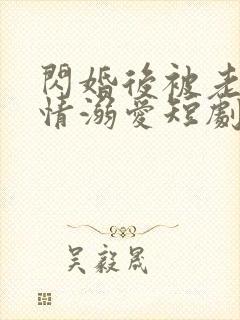 閃婚後被老
情溺愛短劇
吳毅晟